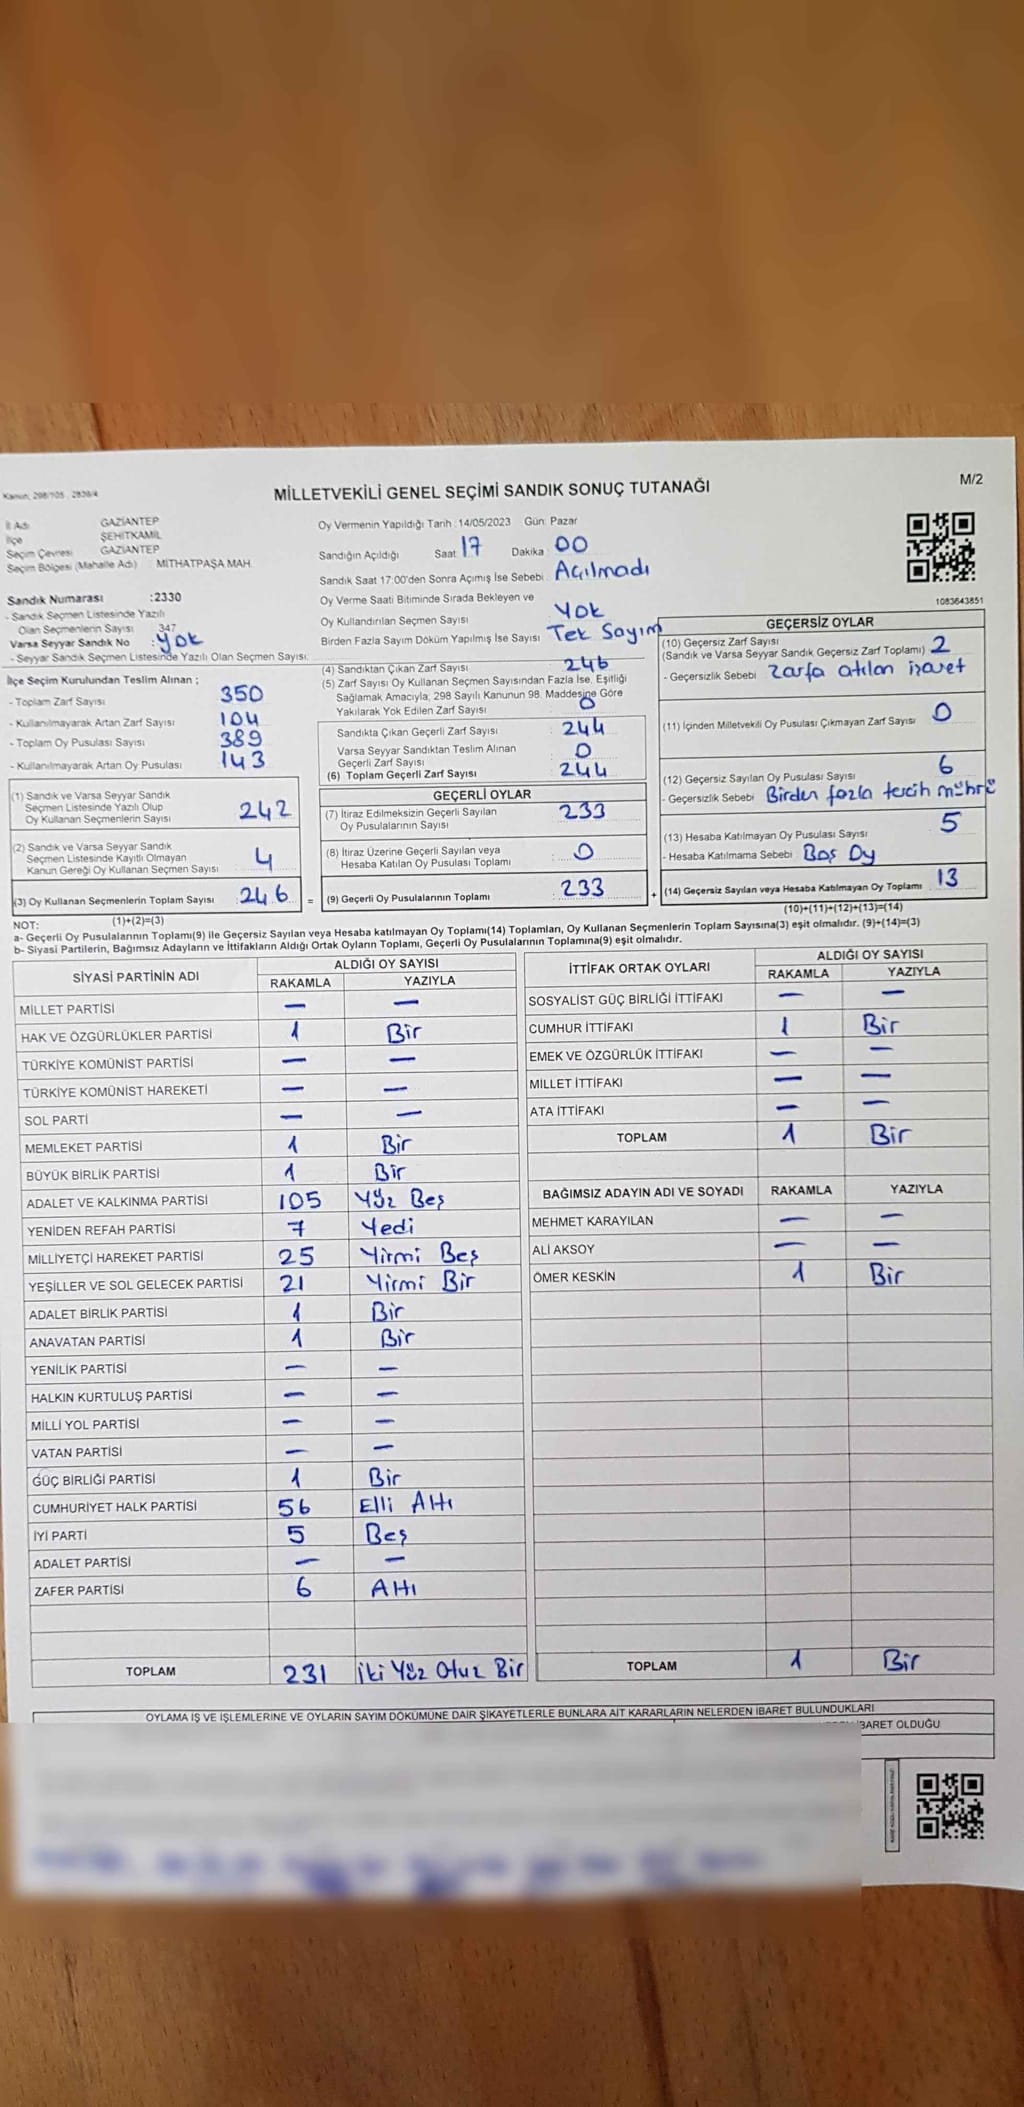 Kanun; 298/105 , 2839/4
MİLLETVEKİLİ GENEL SEÇİMİ SANDIK SONUÇ TUTANAĞI
M/2
İl Adı GAZİANTEP
İlçe ŞEHİTKAMİL
Seçim Çevresi GAZİANTEP
Seçim Bölgesi (Mahalle Adı) : MİTHATPAŞA MAH.
Oy Vermenin Yapıldığı Tarih : 14/05/2023 Gün: Pazar
Sandığın Açıldığı Saat: 17 Dakika : 00
Sandık Saat 17:00'den Sonra Açımış İse Sebebi : Açılmadı
Oy Verme Saati Bitiminde Sırada Bekleyen ve
Oy Kullandırılan Seçmen Sayısı : Yok
Birden Fazla Sayım Döküm Yapılmış İse Sayısı : Tek Sayım
1083643851
Sandık Numarası :2330
- Sandık Seçmen Listesinde Yazılı
Olan Seçmenlerin Sayısı : 347
Varsa Seyyar Sandık No : Yok
- Seyyar Sandık Seçmen Listesinde Yazılı Olan Seçmen Sayısı:
İlçe Seçim Kurulundan Teslim Alınan ;
- Toplam Zarf Sayısı : 350
- Kullanılmayarak Artan Zarf Sayısı : 104
- Toplam Oy Pusulası Sayısı : 389
- Kullanılmayarak Artan Oy Pusulası : 143
(1) Sandık ve Varsa Seyyar Sandık
Seçmen Listesinde Yazılı Olup
Oy Kullanan Seçmenlerin Sayısı : 242
(2) Sandık ve Varsa Seyyar Sandık
Seçmen Listesinde Kayıtlı Olmayan
Kanun Gereği Oy Kullanan Seçmen Sayısı : 4
(3) Oy Kullanan Seçmenlerin Toplam Sayısı : 246 =
(1)+(2)=(3)
(4) Sandıktan Çıkan Zarf Sayısı : 246
(5) Zarf Sayısı Oy Kullanan Seçmen Sayısından Fazla İse, Eşitliği
Sağlamak Amacıyla; 298 Sayılı Kanunun 98. Maddesine Göre
Yakılarak Yok Edilen Zarf Sayısı : 0
Sandıkta Çıkan Geçerli Zarf Sayısı : 244
Varsa Seyyar Sandıktan Teslim Alınan
Geçerli Zarf Sayısı : 0
(6) Toplam Geçerli Zarf Sayısı : 244
GEÇERLİ OYLAR
(7) İtiraz Edilmeksizin Geçerli Sayılan
Oy Pusulalarının Sayısı : 233
(8) İtiraz Üzerine Geçerli Sayılan veya
Hesaba Katılan Oy Pusulası Toplamı : 0
(9) Geçerli Oy Pusulalarının Toplamı : 233 +
GEÇERSİZ OYLAR
(10) Geçersiz Zarf Sayısı
(Sandık ve Varsa Seyyar Sandık Geçersiz Zarf Toplamı) : 2
- Geçersizlik Sebebi : Zarfa atılan işaret
(11) İçinden Milletvekili Oy Pusulası Çıkmayan Zarf Sayısı : 0
(12) Geçersiz Sayılan Oy Pusulası Sayısı : 6
- Geçersizlik Sebebi : Birden fazla tercih mührü
(13) Hesaba Katılmayan Oy Pusulası Sayısı : 5
- Hesaba Katılmama Sebebi : Boş Oy
(14) Geçersiz Sayılan veya Hesaba Katılmayan Oy Toplamı : 13
(10)+(11)+(12)+(13)=(14)
NOT:
a- Geçerli Oy Pusulalarının Toplamı(9) ile Geçersiz Sayılan veya Hesaba katılmayan Oy Toplamı(14) Toplamları, Oy Kullanan Seçmenlerin Toplam Sayısına(3) eşit olmalıdır. (9)+(14)=(3)
b- Siyasi Partilerin, Bağımsız Adayların ve İttifakların Aldığı Ortak Oyların Toplamı, Geçerli Oy Pusulalarının Toplamına(9) eşit olmalıdır.
SİYASİ PARTİNİN ADI ALDIĞI OY SAYISI
RAKAMLA YAZIYLA
MİLLET PARTİSİ — —
HAK VE ÖZGÜRLÜKLER PARTİSİ 1 Bir
TÜRKİYE KOMÜNİST PARTİSİ — —
TÜRKİYE KOMÜNİST HAREKETİ — —
SOL PARTİ — —
MEMLEKET PARTİSİ 1 Bir
BÜYÜK BİRLİK PARTİSİ 1 Bir
ADALET VE KALKINMA PARTİSİ 105 Yüz Beş
YENİDEN REFAH PARTİSİ 7 Yedi
MİLLİYETÇİ HAREKET PARTİSİ 25 Yirmi Beş
YEŞİLLER VE SOL GELECEK PARTİSİ 21 Yirmi Bir
ADALET BİRLİK PARTİSİ 1 Bir
ANAVATAN PARTİSİ 1 Bir
YENİLİK PARTİSİ — —
HALKIN KURTULUŞ PARTİSİ — —
MİLLİ YOL PARTİSİ — —
VATAN PARTİSİ — —
GÜÇ BİRLİĞİ PARTİSİ 1 Bir
CUMHURİYET HALK PARTİSİ 56 Elli Altı
İYİ PARTİ 5 Beş
ADALET PARTİSİ — —
ZAFER PARTİSİ 6 Altı
TOPLAM 231 İki Yüz Otuz Bir
İTTİFAK ORTAK OYLARI ALDIĞI OY SAYISI
RAKAMLA YAZIYLA
SOSYALİST GÜÇ BİRLİĞİ İTTİFAKI — —
CUMHUR İTTİFAKI 1 Bir
EMEK VE ÖZGÜRLÜK İTTİFAKI — —
MİLLET İTTİFAKI — —
ATA İTTİFAKI — —
TOPLAM 1 Bir
BAĞIMSIZ ADAYIN ADI VE SOYADI RAKAMLA YAZIYLA
MEHMET KARAYILAN — —
ALİ AKSOY — —
ÖMER KESKİN 1 Bir
TOPLAM 1 Bir
OYLAMA İŞ VE İŞLEMLERİNE VE OYLARIN SAYIM DÖKÜMÜNE DAİR ŞİKAYETLERLE BUNLARA AİT KARARLARIN NELERDEN İBARET BULUNDUKLARI
İBARET OLDUĞU